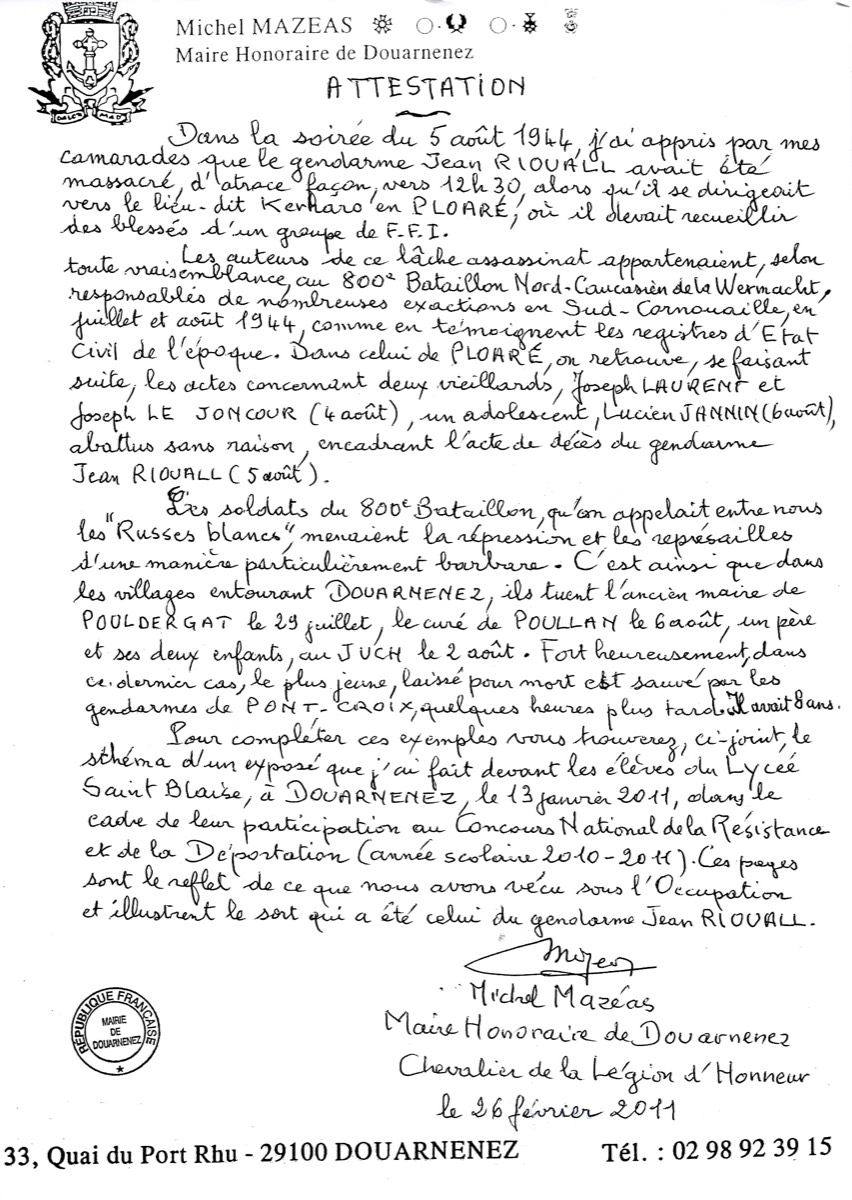 Michel MAZEAS
Maire Honoraire de Douarnenez
ATTESTATION
Dans la soirée du 5 août 1944, j'ai appris par mes
camarades que le gendarme Jean RIOUALL avait été
massacré, d'atrace façon, vers 12h30, alors qu'il se dirigeait
vers le lieu-dit Kerharo en PLOARÉ, où il devait recueillir
des blessés d'un groupe de F.F.I.
Les auteurs de ce lâche assassinat appartenaient, selon
toute vraisemblance, au 800e Bataillon Nord-Caucasien de la Wermacht,
responsables de nombreuses exactions en Sud-Cornouaille, en
juillet et août 1944, comme en témoignent les registres d'Etat
Civil de l'époque. Dans celui de PLOARÉ, on retrouve, se faisant
suite, les actes concernant deux vieillards, Joseph LAURENT et
Joseph LE JONCOUR (4 août), un adolescent, Lucien JANNIN (6 août),
abattus sans raison, encadrant l'acte de décès du gendarme
Jean RIOUALL (5 août).
Les soldats du 800e Bataillon, qu'on appelait entre nous
les "Russes blancs", menaient la répression et les représailles
d'une manière particulièrement barbare. C'est ainsi que dans
les villages entourant DOUARNENEZ, ils tuent l'ancien maire de
POULDERGAT le 29 juillet, le curé de POULLAN le 6 août, un père
et ses deux enfants, au JUCH le 2 août. Fort heureusement, dans
ce dernier cas, le plus jeune, laissé pour mort est sauvé par les
gendarmes de PONT-CROIX, quelques heures plus tard. Il avait 8 ans.
Pour compléter ces exemples vous trouverez, ci-joint, le
schéma d'un exposé que j'ai fait devant les élèves du Lycée
Saint Blaise, à DOUARNENEZ, le 13 janvier 2011, dans le
cadre de leur participation au Concours National de la Résistance
et de la Déportation (année scolaire 2010-2011). Ces pages
sont le reflet de ce que nous avons vécu sous l'Occupation
et illustrent le sort qui a été celui du gendarme Jean RIOUALL.
Michel Mazéas
Maire Honoraire de Douarnenez
Chevalier de la Légion d'Honneur
le 26 février 2011
RÉPUBLIQUE FRANÇAISE
MAIRIE
DE
DOUARNENEZ
33, Quai du Port Rhu - 29100 DOUARNENEZ Tél. : 02 98 92 39 15